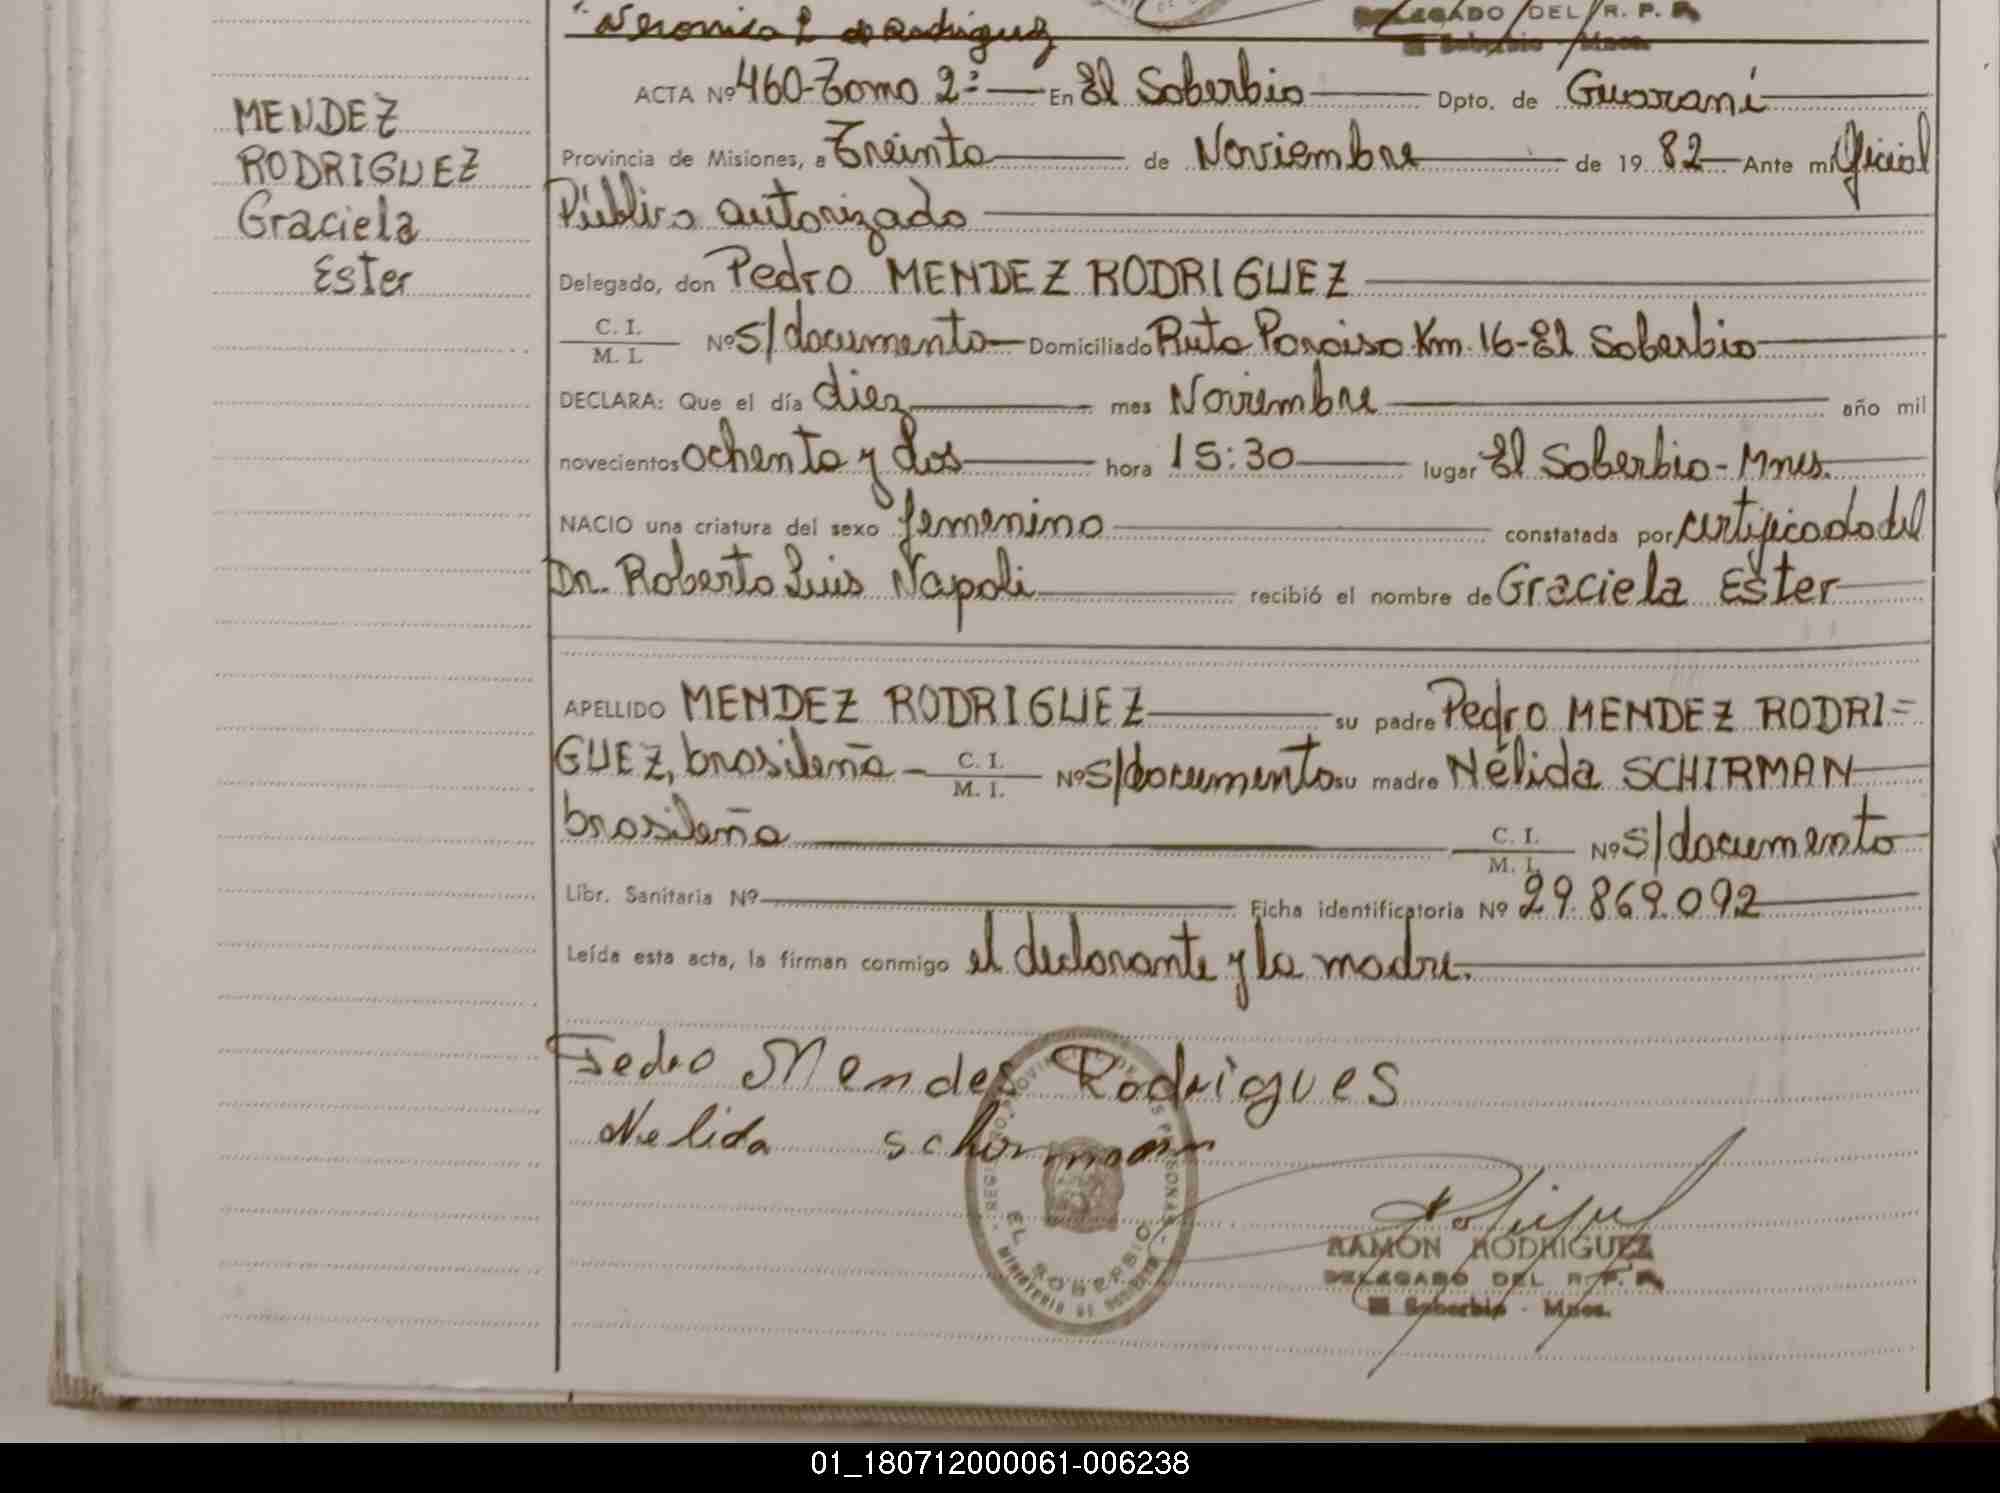 Veronica R de Rodriguez
DELEGADO DEL R. P. P.
El Soberbio - Mnes.
MENDEZ
RODRIGUEZ
Graciela
Ester
ACTA Nº 460-Tomo 2º En El Soberbio Dpto. de Guaraní
Provincia de Misiones, a Treinta de Noviembre de 19 82 Ante mi Oficial
Público autorizado
Delegado, don Pedro MENDEZ RODRIGUEZ
C. I.
M. I. Nº S/documento Domiciliado Ruta Paraiso Km. 16-El Soberbio
DECLARA: Que el día diez mes Noviembre año mil
novecientos ochenta y dos hora 15:30 lugar El Soberbio-Mnes.
NACIO una criatura del sexo femenino constatada por certificado del
Dr. Roberto Luis Napoli recibió el nombre de Graciela Ester
APELLIDO MENDEZ RODRIGUEZ su padre Pedro MENDEZ RODRI=
GUEZ, brasileña - C. I.
M. I. Nº S/documento su madre Nélida SCHIRMAN
brasileña C. I.
M. I. Nº S/documento
Libr. Sanitaria Nº Ficha identificatoria Nº 29.869.092
Leída esta acta, la firman conmigo el declarante y la madre.
Pedro Mendes Rodrigues
Nelida schirmann
EL SOBERBIO
RAMON RODRIGUEZ
DELEGADO DEL R. P. P.
El Soberbio - Mnes.
01_180712000061-006238